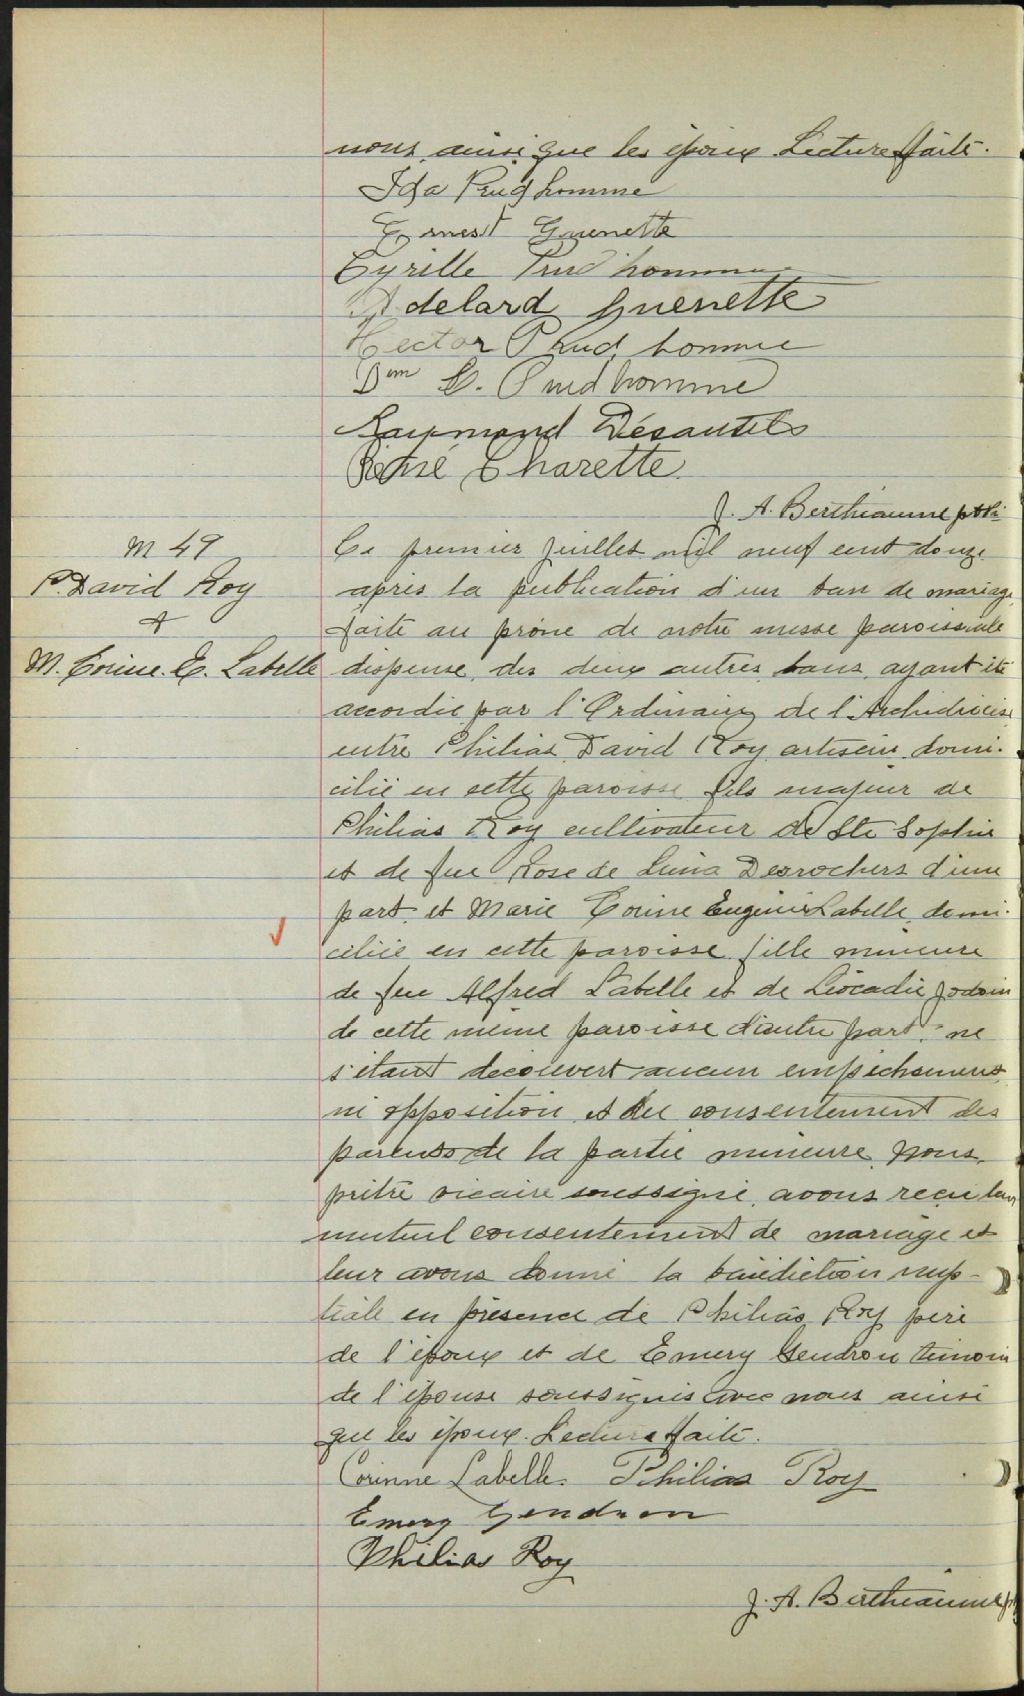 nous, ainsi que les époux. Lecture faite.
Ida Prud'homme
Ernest Guenette
Cyrille Prud'homme
Adelard Guenette
Hector Prud'homme
Dme C. Prudhomme
Raymond Désautels
René Charette
J. A. Berthiaume ptre
M 49
P. David Roy
&
M. Corine. E. Labelle
Ce premier juillet mil neuf cent douze
après la publication d'un ban de mariage
faite au prône de notre messe paroissiale
dispense des deux autres bans ayant été
accordée par l'Ordinaire de l'Archidiocèse
entre Philias David Roy artisan domi-
cilié en cette paroisse fils majeur de
Philias Roy cultivateur de Ste Sophie
et de feue Rose de Lima Desrochers d'une
part, et Marie Corine Eugénie Labelle, domi-
ciliée en cette paroisse fille mineure
de feu Alfred Labelle et de Léocadie Jodoin
de cette même paroisse d'autre part, ne
s'étant découvert aucun empêchement
ni opposition et du consentement des
parents de la partie mineure, Nous,
prêtre vicaire soussigné, avons reçu leur
mutuel consentement de mariage et
leur avons donné la bénédiction nup-
tiale en présence de Philias Roy père
de l'époux et de Emery Gendron témoin
de l'épouse soussignés avec nous ainsi
que les époux. Lecture faite.
Corinne Labelle. Philias Roy
Emery Gendron
Philias Roy
J. A. Berthiaume